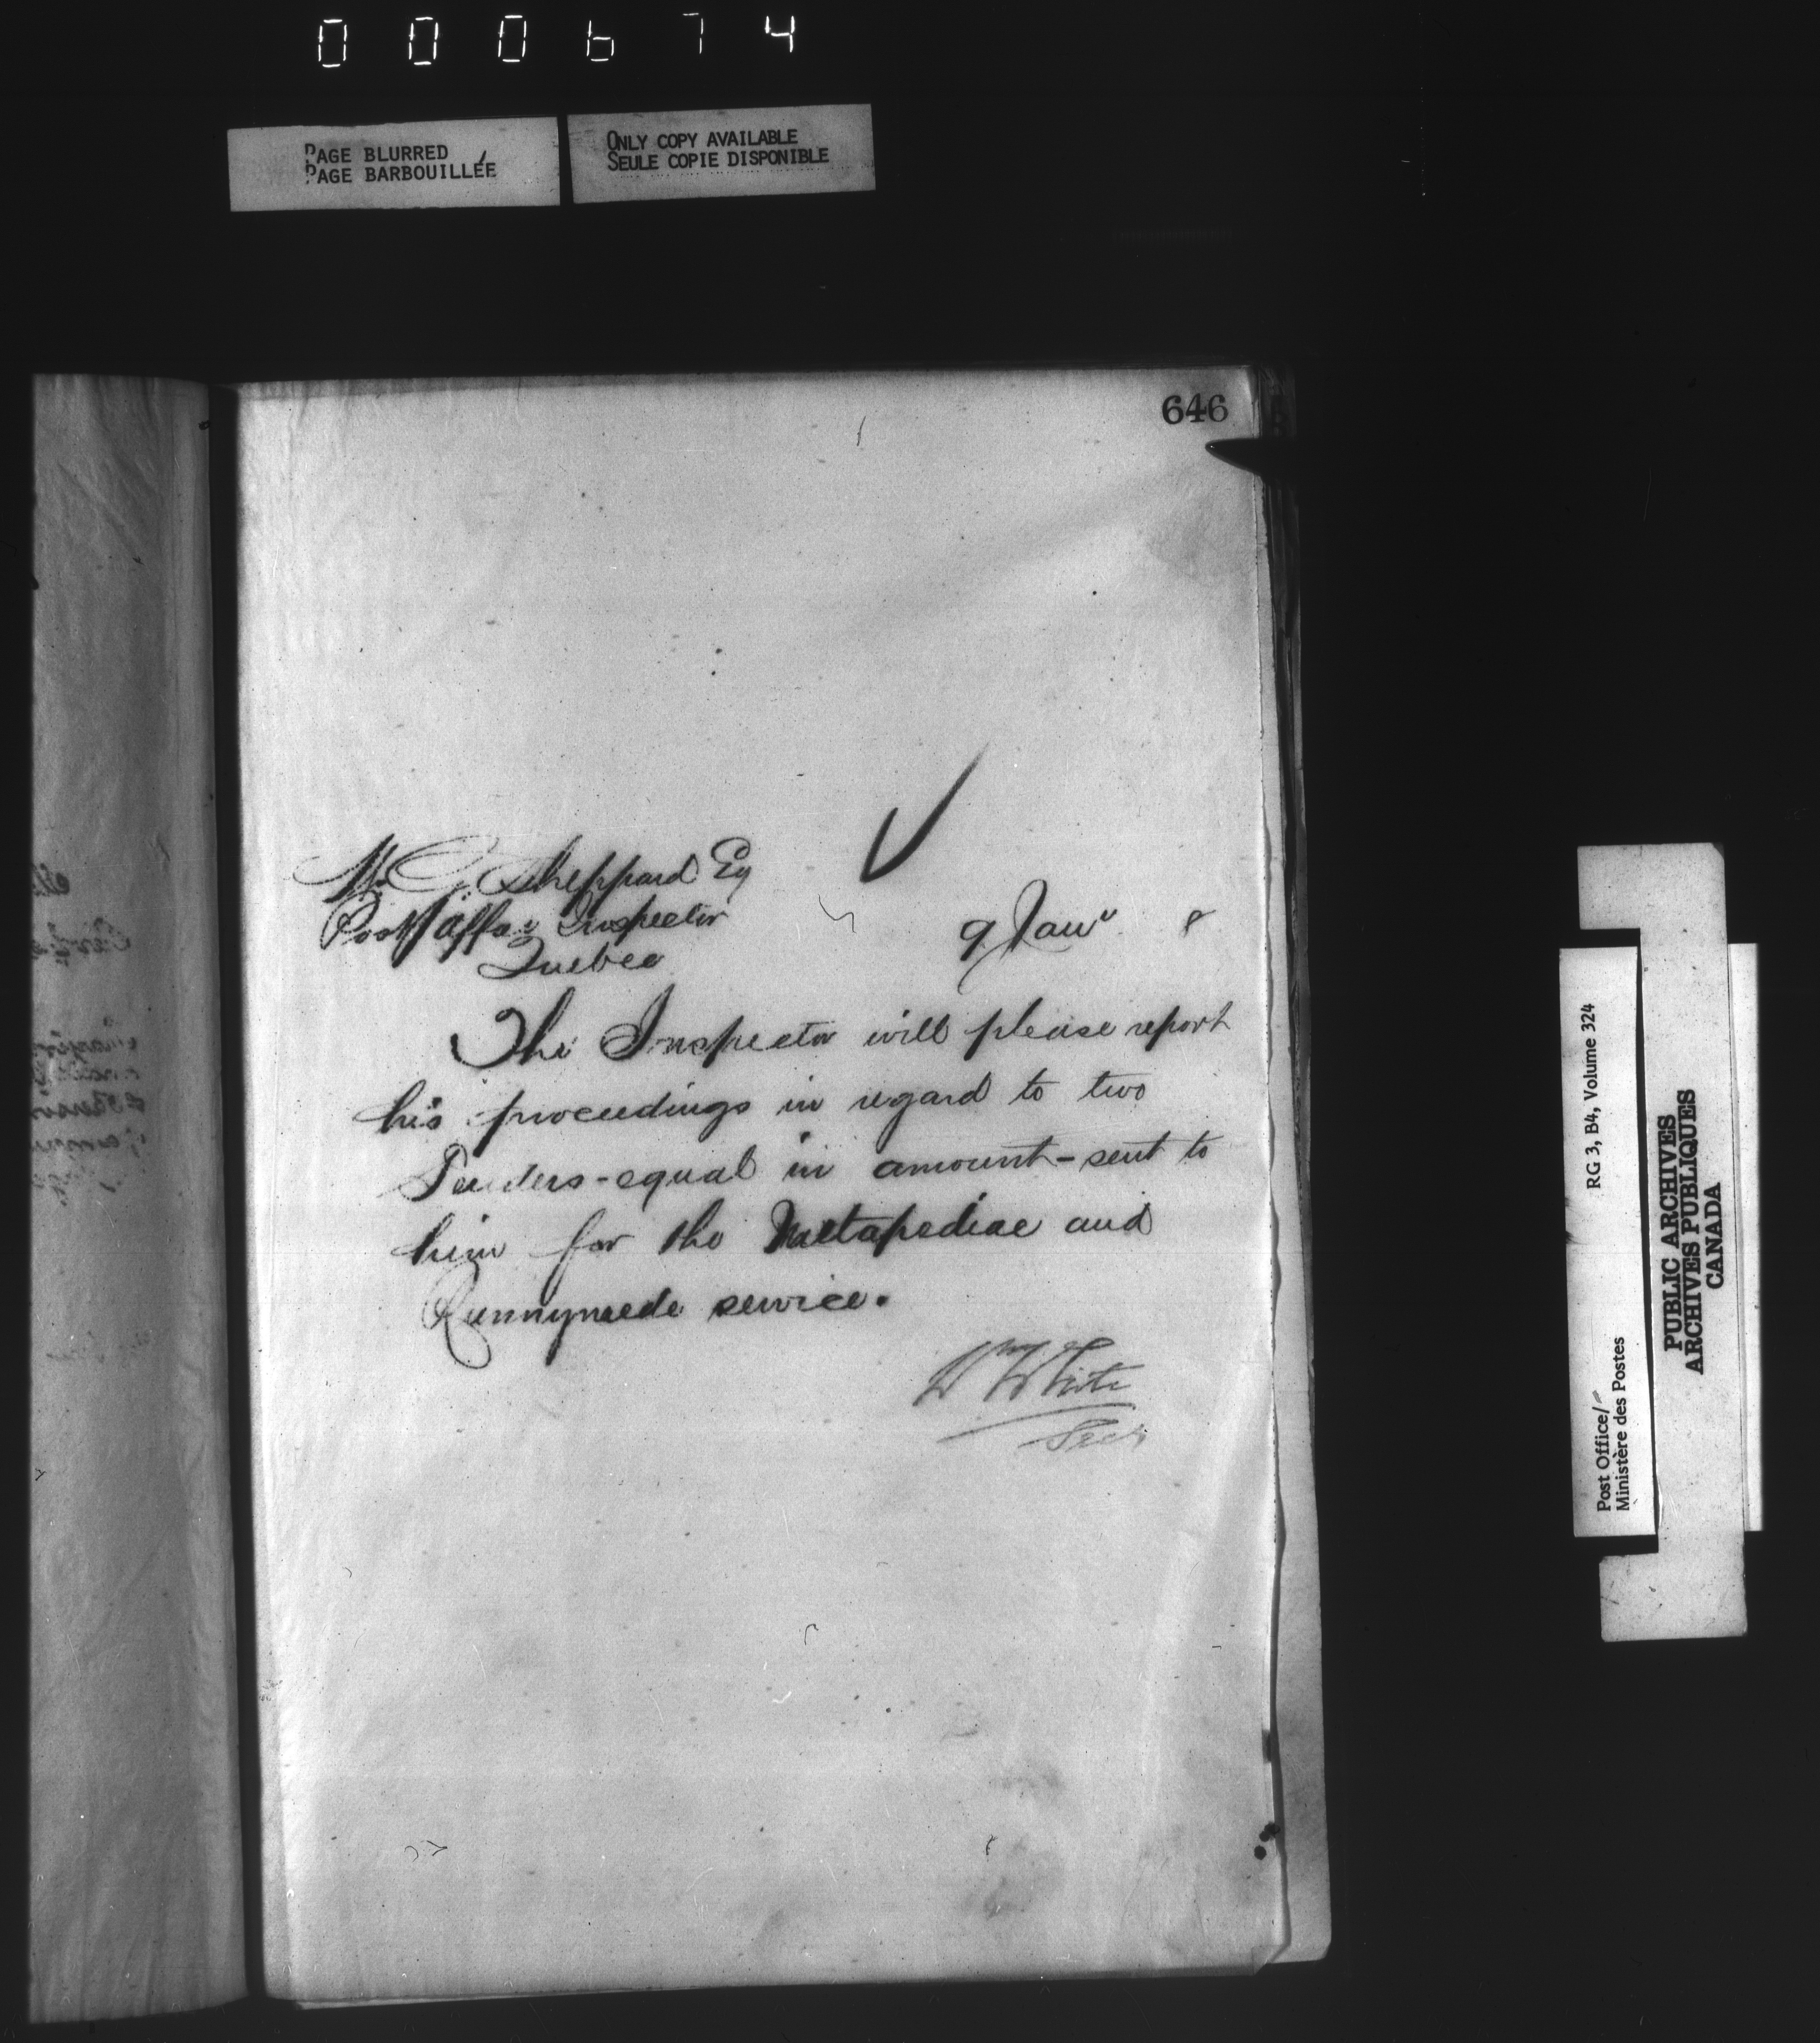 000674
PAGE BLURRED
PAGE BARBOUILLÉE
ONLY COPY AVAILABLE
SEULE COPIE DISPONIBLE
646
W. G. Sheppard Esq
Post Office Inspector
Quebec
9 Jany 8
The Inspector will please report
his proceedings in regard to two
Tenders - equal in amount - sent to
him for the Metapediac and
Runnymede service.
Wm White
Secy
RG 3, B4, Volume 324
Post Office/
Ministère des Postes
PUBLIC ARCHIVES
ARCHIVES PUBLIQUES
CANADA